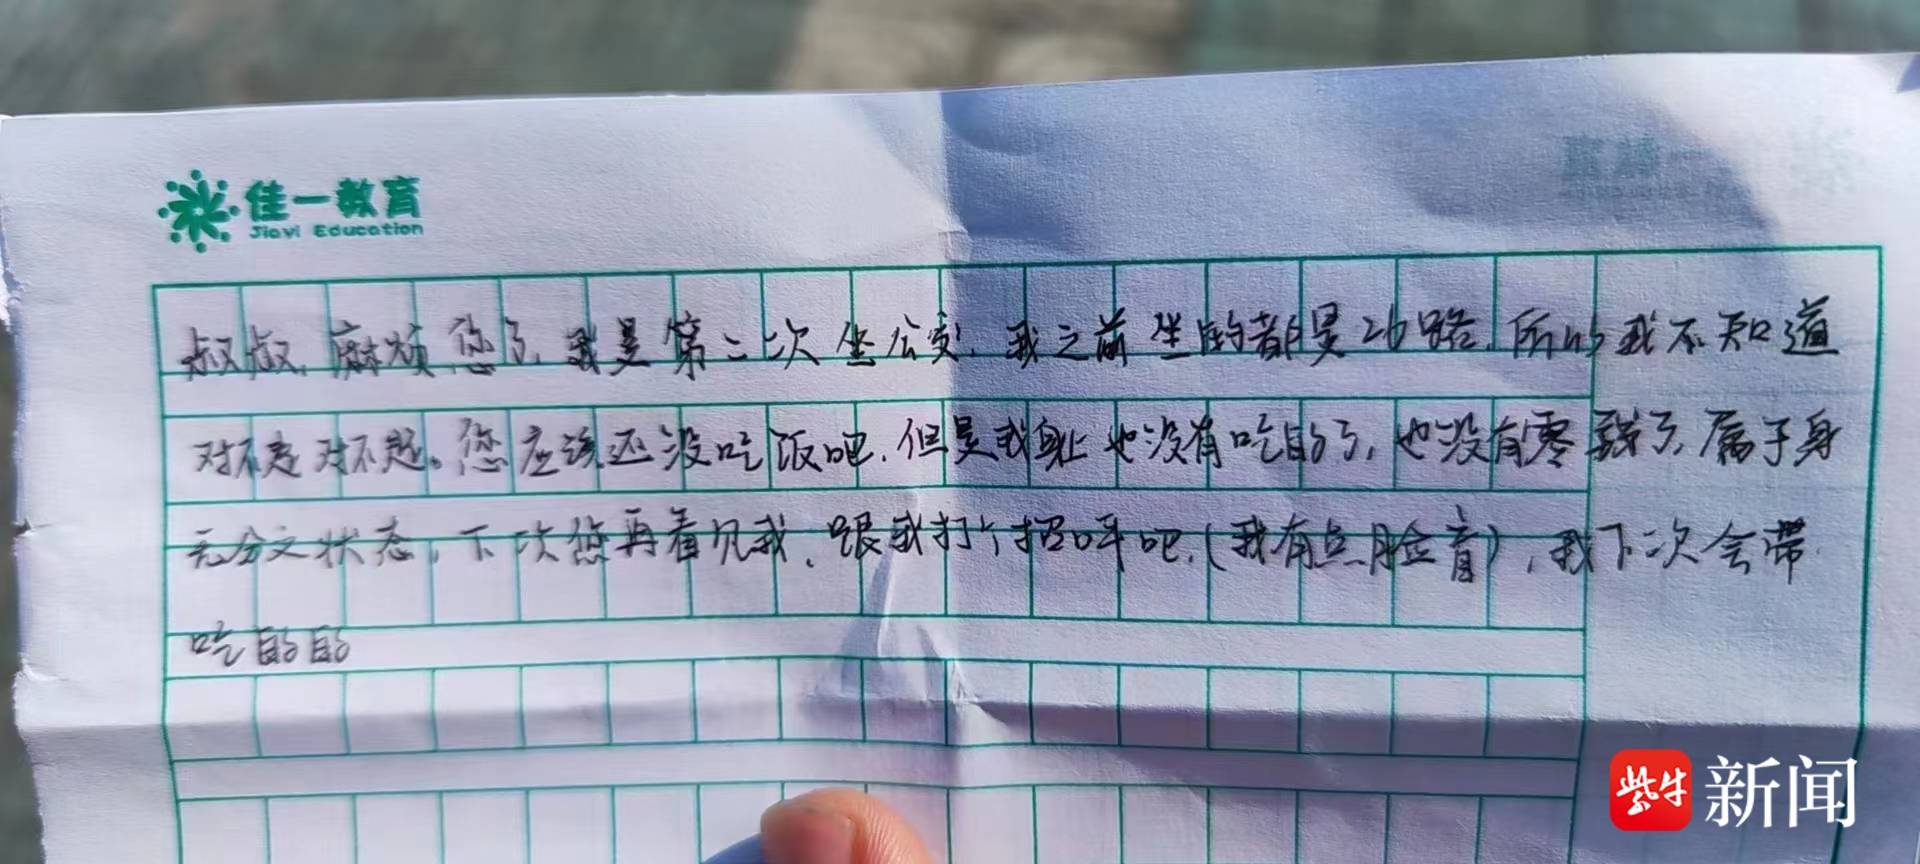 佳一教育
Jiayi Education
叔叔，麻烦您了，我是第二次坐公交，我之前坐的都是26路，所以我不知道
对不起对不起。您应该还没吃饭吧，但是我身上也没有吃的了，也没有零钱了，属于身
无分文状态，下次您再看见我，跟我打个招呼吧，（我有点脸盲），我下次会带
吃的的
紫牛新闻